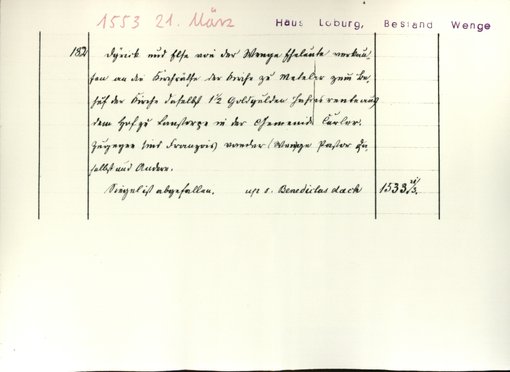 1553 21. März Haus Loburg, Bestand Wenge
182 Dyrick und Else von der Wenge Eheleute verkau-
fen an die Kirchräthe der Kirche zu Metelen zum Be-
huf der Kirche daselbst 1½ Goldgulden Jahresrente aus
dem Hof zu in der
Zugegen: van der Wenge Pastor da-
selbst und Andere.
Siegel ist abgefallen. up s. Benedictus dach 1533 21/3.